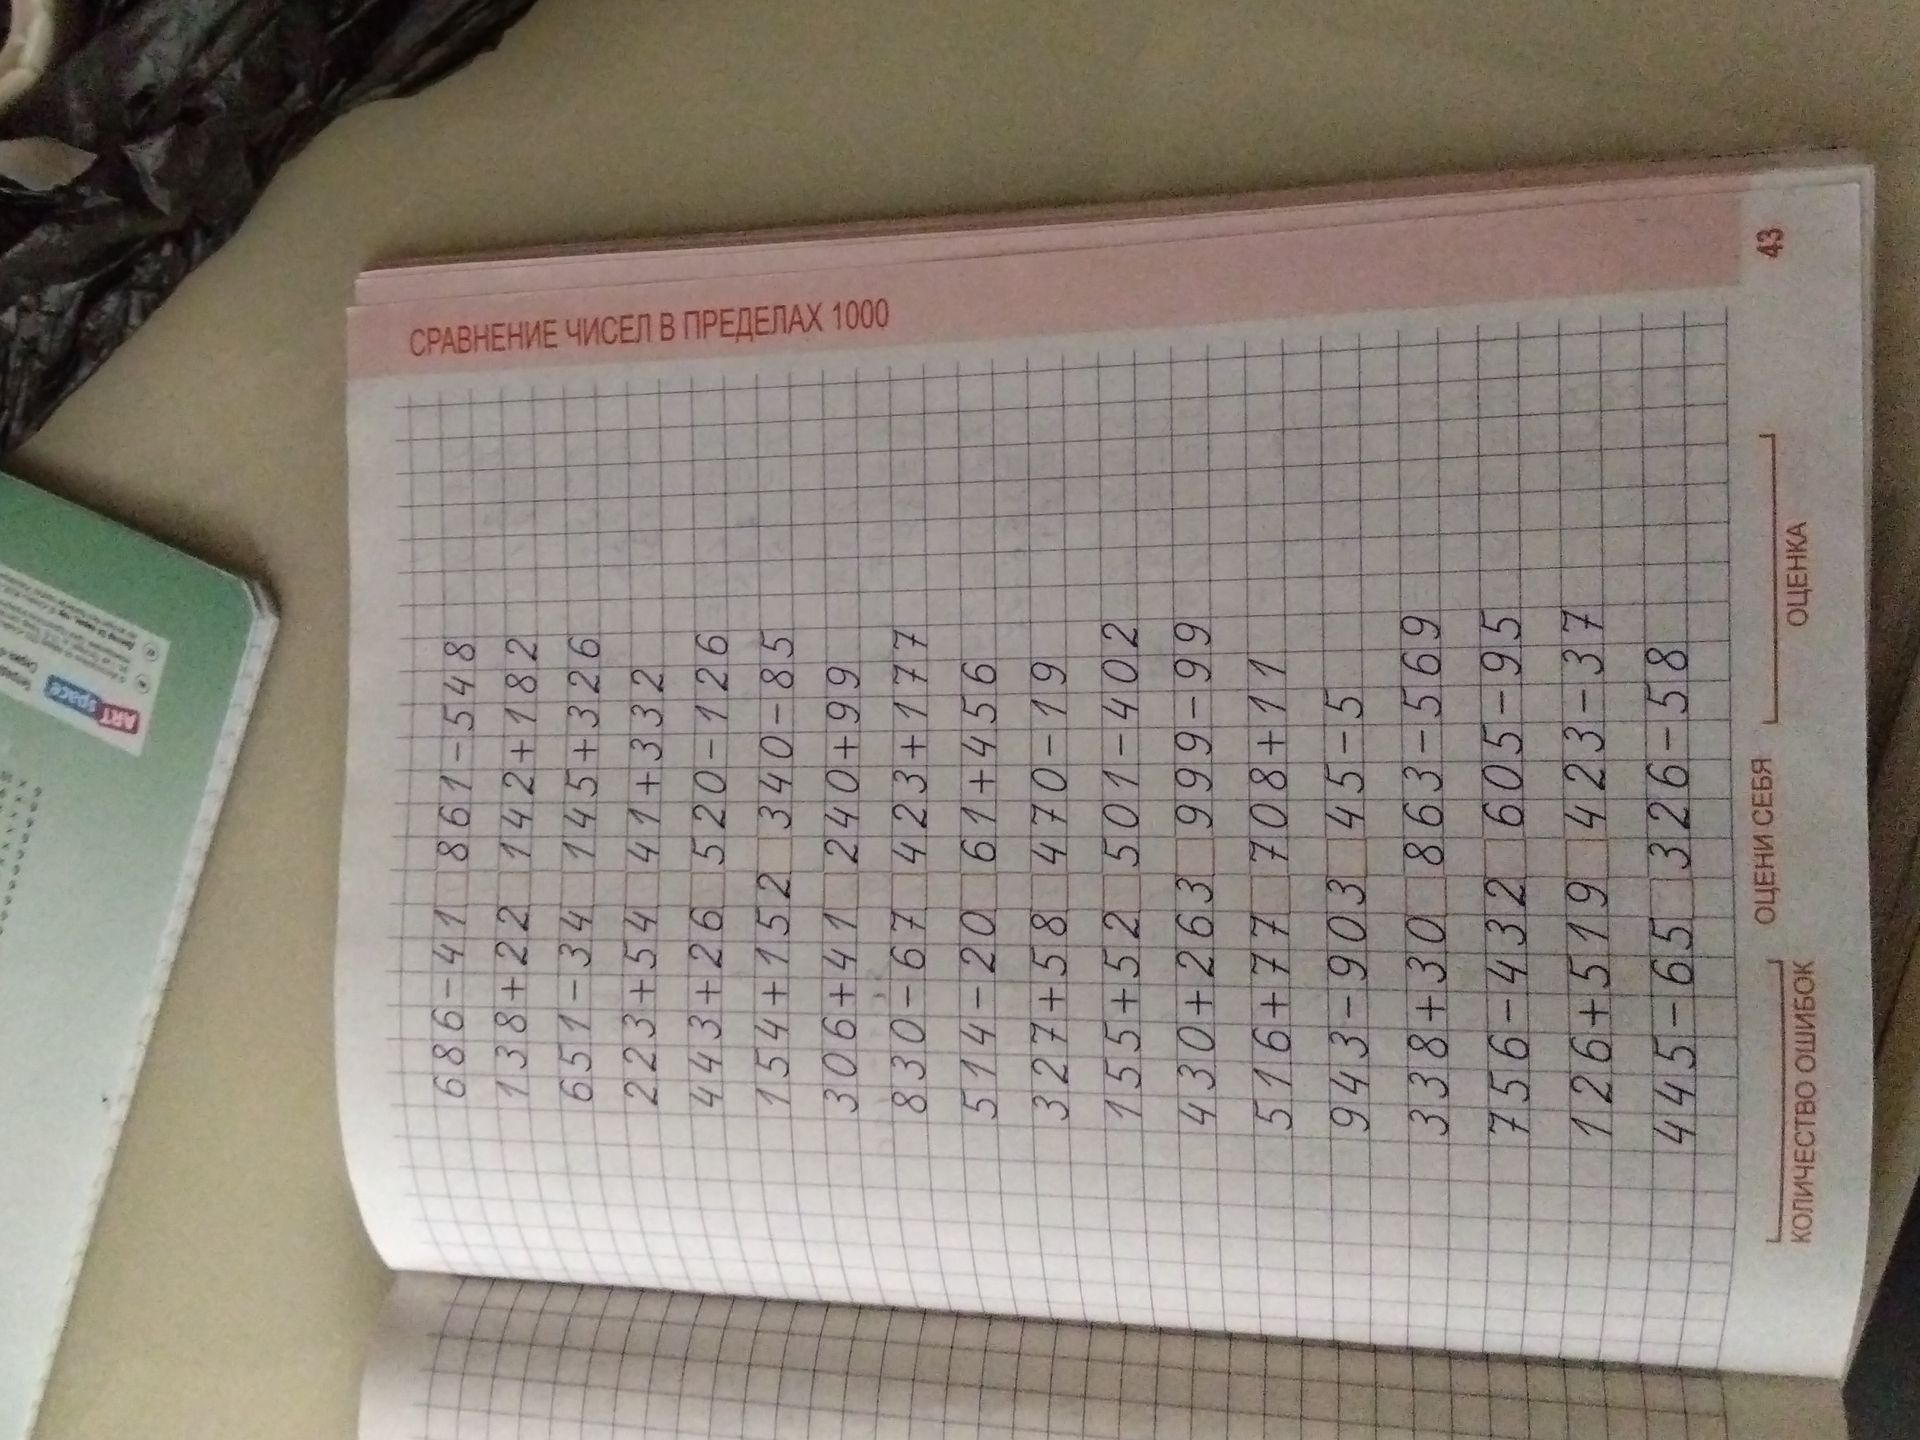 СРАВНЕНИЕ ЧИСЕЛ В ПРЕДЕЛАХ 1000
686-41 861-548
138+22 142+182
651-34 145+326
223+54 41+332
443+26 520-126
154+152 340-85
306+41 240+99
830-67 423+177
514-20 61+456
327+58 470-19
155+52 501-402
430+263 999-99
516+77 708+11
943-903 45-5
338+30 863-569
756-432 605-95
126+519 423-37
445-65 326-58
КОЛИЧЕСТВО ОШИБОК ОЦЕНИ СЕБЯ ОЦЕНКА
43
ART
space